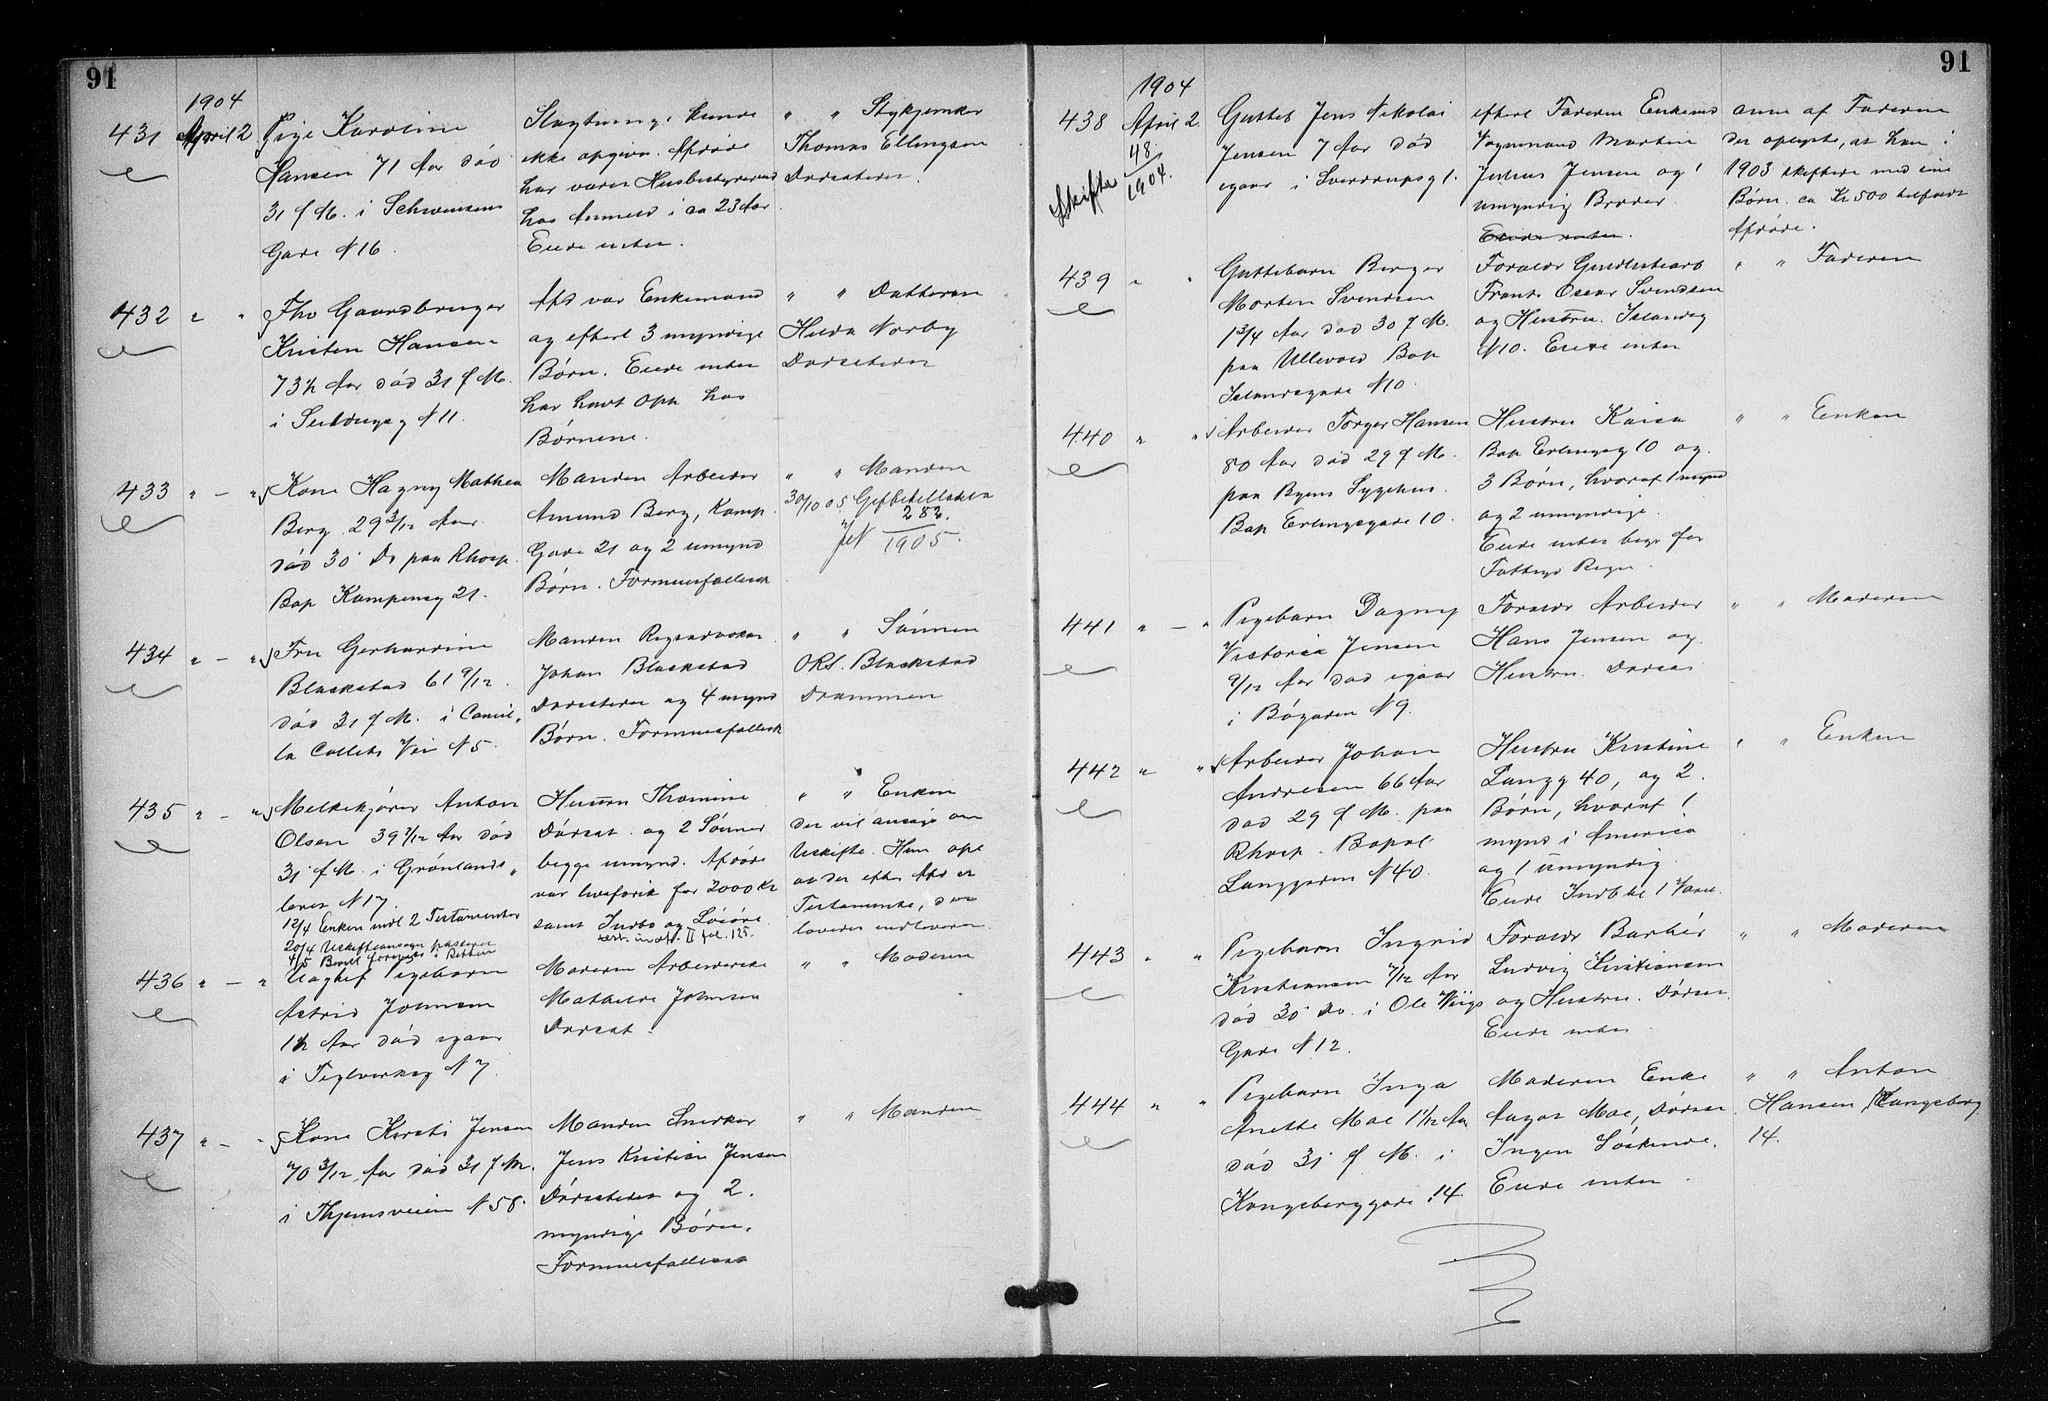 91
1904
431 April 2 Pige Karoline
Hansen 71 Aar død
31 f M. i Schwensens
Gade N 16.
Slægtninge kunde
ikke opgives. Afdøde
har været Husbestyrerinde
hos Anmeld i ca 23 Aar
Eiede intet.
" " Stykjunker
Thomas Ellingsen
Dødsstedet.
432 " " Fhv Gaardbruger
Kristen Hansen
73½ Aar død 31 f M.
i N 11.
Afd var Enkemand
og efterl 3 myndige
Børn. Eiede intet
har havt Oph hos
Børnene.
" " Datteren
Hulda Norby
Dødsstedet
433 " — " Kone Hagny Mathea
Berg 29 3/12 Aar
død 30 Ds paa Rhosp.
Bop Kampensg 21.
Manden Arbeider
Amund Berg, Kamp.
Gade 21 og 2 umynd
Børn. Formuesfællesk
" " Manden
30/10 05 Giftetilladelse
Jr N 282/1905.
434 " — " Fru Gerhardine
Blackstad 61 9/12
død 31 f M. i Camil-
la Colletts Vei N 5.
Manden Regsadvokat
Johan Blackstad
Dødsstedet og 4 mynd
Børn. Formuesfællesk
" " Sønnen
Blackstad
Drammen
435 " — " Melkekjører Anton
Olsen 39 7/12 Aar død
31 f M. i Grønlands-
leret N 17.
12/4 Enken indl 2 Testamenter
20/4 Uskifteansøgn
4/5 Bevill i Retten
Hustru Thomine
Dødsst. og 2 Sønner
begge umynd. Afdøde
var livsforsik for 2000 Kr
samt Indbo og Løsøre
test. indf. II fol. 125.
" " Enken
der vil ansøge om
Uskifte. Hun opl
at der efter Afd er
Testamente, der
lovedes indleveret.
436 " — " Uægtef Pigebarn
Astrid Johnsen
1½ Aar død igaar
i Teglverksg N 7
Moderen Arbeiderske
Mathilde Johnsen
Dødsst.
" " Moderen
437 " — " Kone Kirsti Jensen
70 3/12 Aar død 31 f M.
i Thjemsveien N 58.
Manden Snekker
Jens Kristian Jensen
Dødsstedet og 2
myndige Børn.
Formuesfællessk
" " Manden
91
1904
438 April 2. Gutteb Jens Nikolai
Jensen 7 Aar død
igaar i Sverdrupsg 1.
Skifte 48/1904.
efterl Faderen Enkemd
Vognmand Martin
Julius Jensen og 1
umyndig Broder.
Eiede intet.
anm af Faderen
der oplyste, at han i
1903 skiftede med sine
Børn. ca Kr 500 tilfaldt
Afdøde.
439 " " Guttebarn Birger
Morten Svendsen
1 3/4 Aar død 30 f M.
paa Ullevold Bop
Islandsgade N 10.
Forældr Gardistarb
Frants Oscar Svendsen
og Hustru. Islandsg
N 10. Eiede intet
" " Faderen
440 " " Arbeider Torger Hansen
80 Aar død 29 f M.
paa Byens Sygehus.
Bop Erlingsgade 10.
Hustru Kaisa
Bop Erlingsg 10 og
3 Børn, hvoraf 1 mynd
og 2 umyndige.
Eiede intet begr for
Fattigv Regn.
" " Enken
441 " — " Pigebarn Dagny
Victoria Jensen
9/12 Aar død igaar
i Bøgaden N 9.
Forældr Arbeider
Hans Jensen og
Hustru. Dødsst
" " Moderen
442 " " Arbeider Johan
Andresen 66 Aar
død 29 f M. paa
Rhosp. Bopæl
Langgaden N 40.
Hustru Kristine
Langg 40, og 2
Børn, hvoraf 1
mynd i America
og 1 umyndig
Eiede Indb til 1 Være.
" " Enken
443 " " Pigebarn Ingrid
Kristiansen 7/12 Aar
død 30 Ds. i Ole Viigs
Gade N 12.
Forældr Barbér
Ludvig Kristiansen
og Hustru. Dødsst.
Eiede intet
" " Moderen
444 " " Pigebarn Inga
Anette Moe 1 1/12 Aar
død 31 f M. i
Kongsberggade 14.
Moderen Enke
Aagot Moe, Dødsst.
Ingen Søskende.
Eiede intet
" " Anton
Hansen, Kongsberg
14.